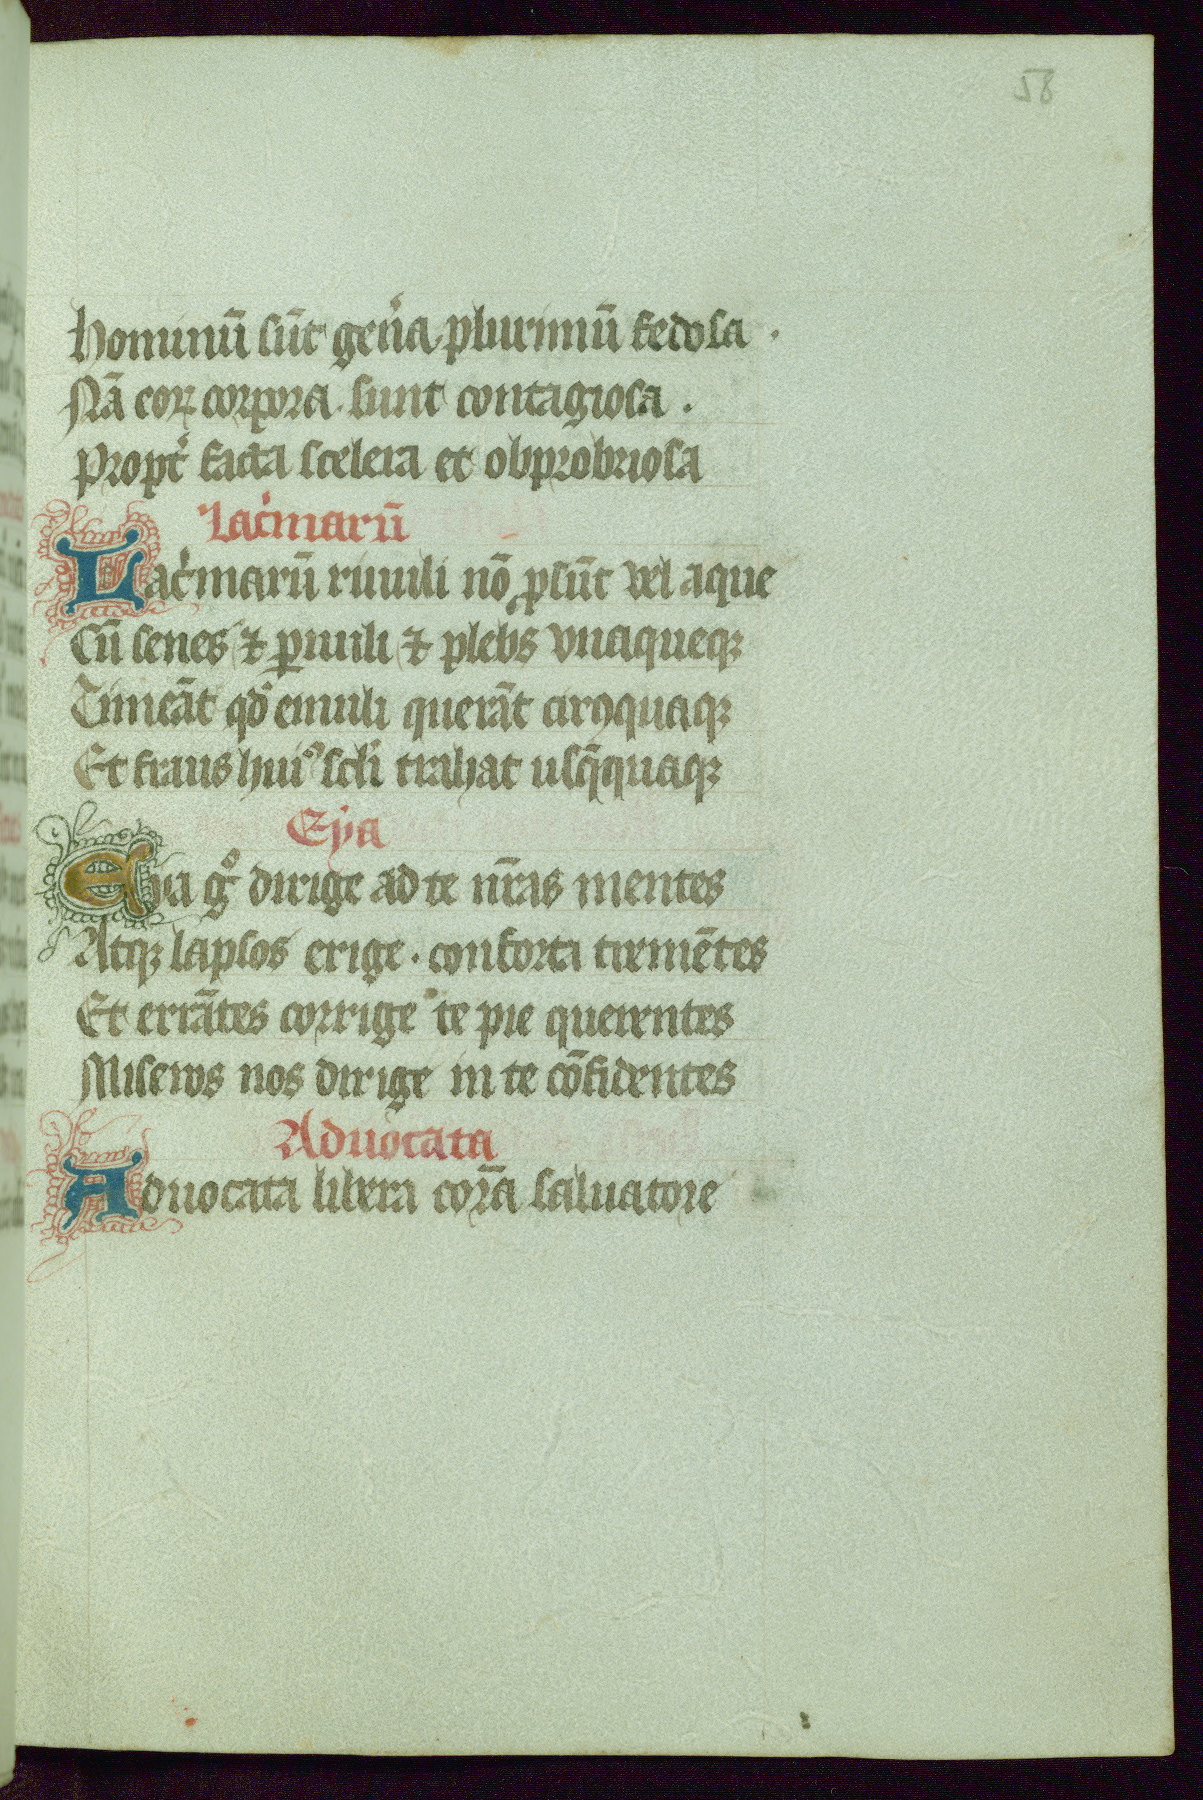 58
Hominū sūt gen̄a plurimū fedosa .
Nā eoꝝ corpora . sunt contagiosa .
Propt̄ facta scelera et obprobriosa
Lac̄marū
Lac̄marū riuuli nō ꝓsūt vel aque
Cū senes ⁊ ꝑuuli ⁊ plebs vnaqueqꝫ
Timeāt qd̄ emuli querāt circūquaqꝫ
Et fraus huiꝰ scl̄i trahat usq̄quaqꝫ
Eya
Eya gͦ dirige ad te nr̄as mentes
Atqꝫ lapsos erige . conforta timēntes
Et errātes corrige te pie querentes
Miseros nos dirige in te cōfidentes
Aduocata
Aduocata libera corā saluatore